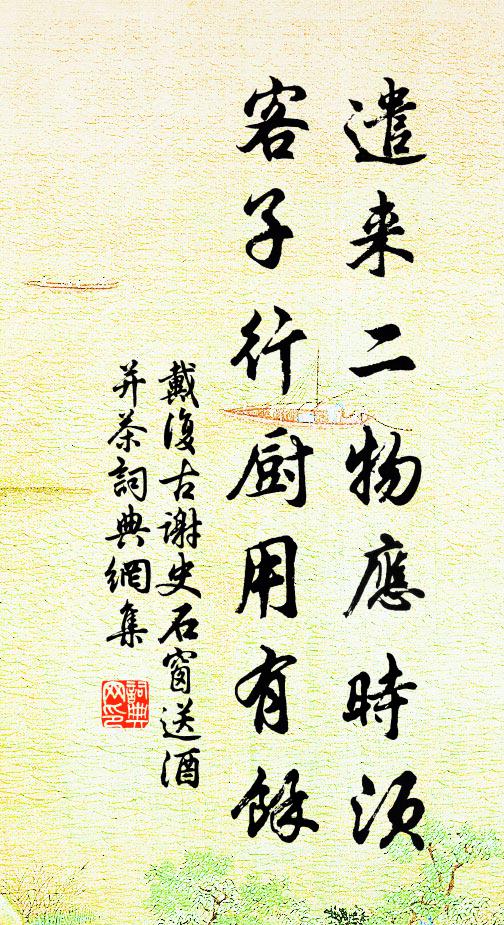 遣来二物應時須
客子行厨用有餘
戴復古謝史石窗送酒
并茶詞典網集
詞典
网印